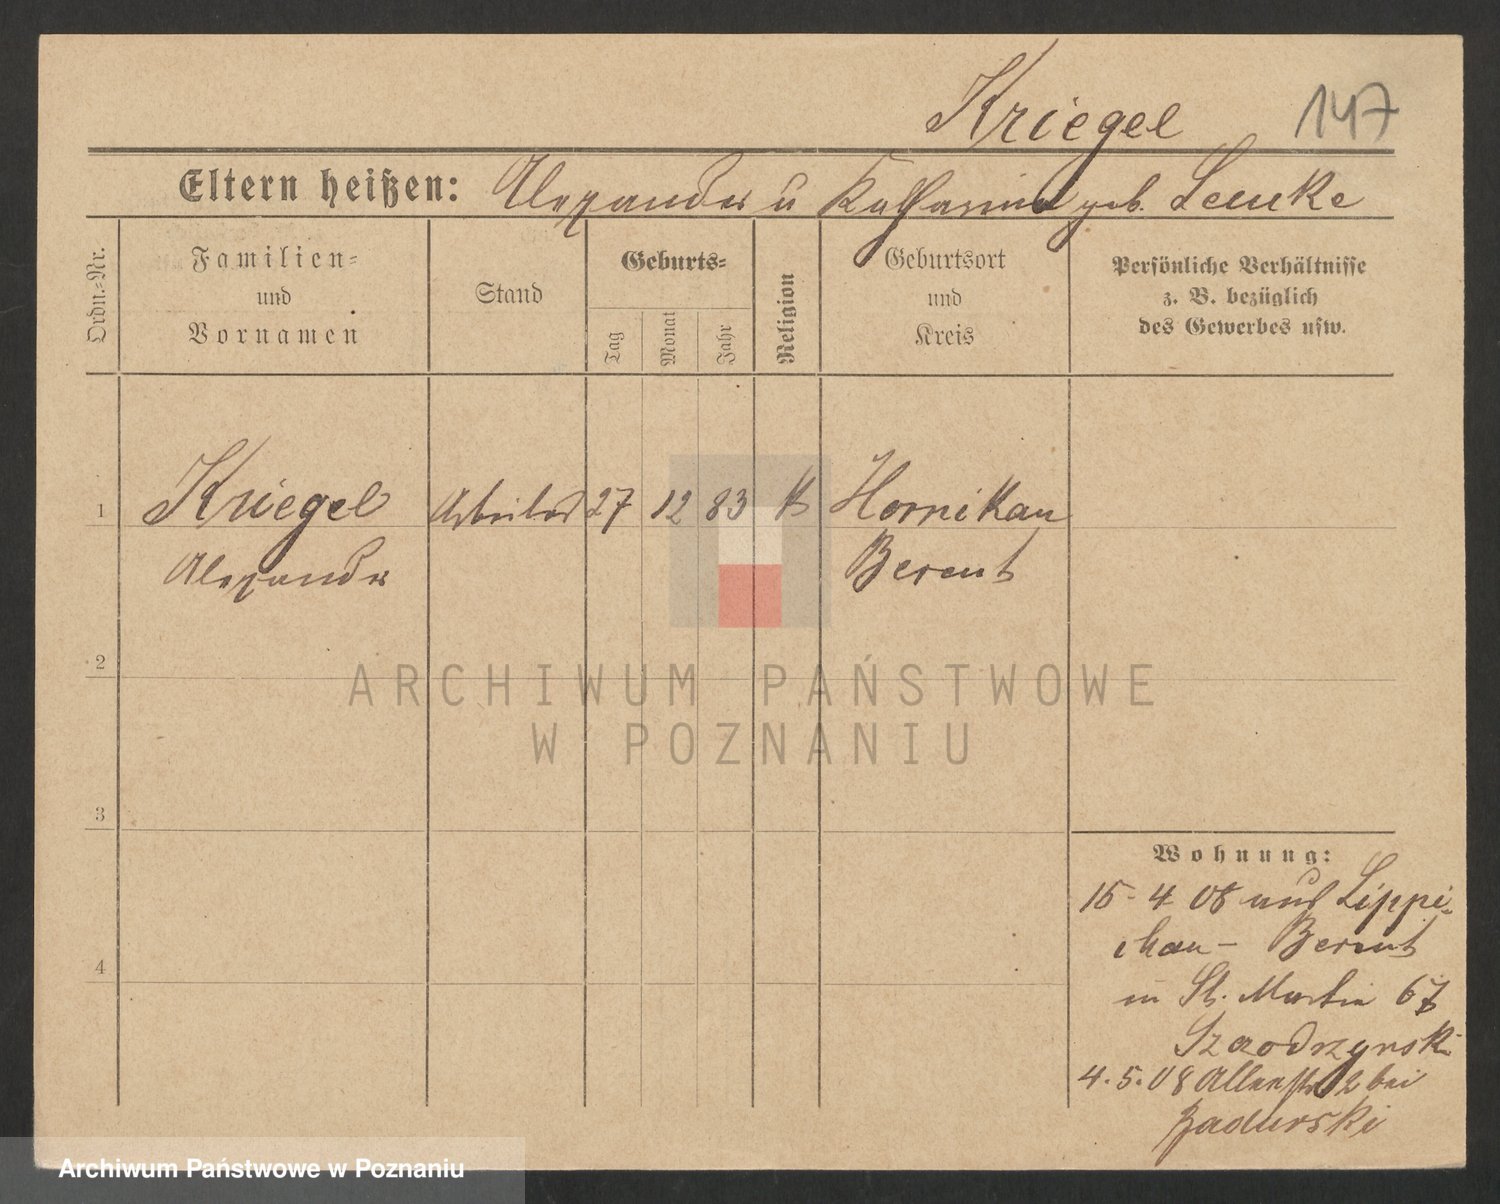 Kriegel 147
Eltern heißen: Alexander u Katharina geb. Lemke
Ordn.-Nr.
Familien-
und
Vornamen
Stand
Geburts-
Tag
Monat
Jahr
Religion
Geburtsort
und
Kreis
Persönliche Verhältnisse
z. B. bezüglich
des Gewerbes usw.
1 Kriegel Arbeiter 27 12 83 k Hornikau
Alexander Berent
2
ARCHIWUM PAŃSTWOWE
W POZNANIU
3
Wohnung:
15-4 08 aus Lippi-
- Berent
in St. Martin 67
4
4.5.08 Allerstr 2 bei
Badurski
Archiwum Państwowe w Poznaniu